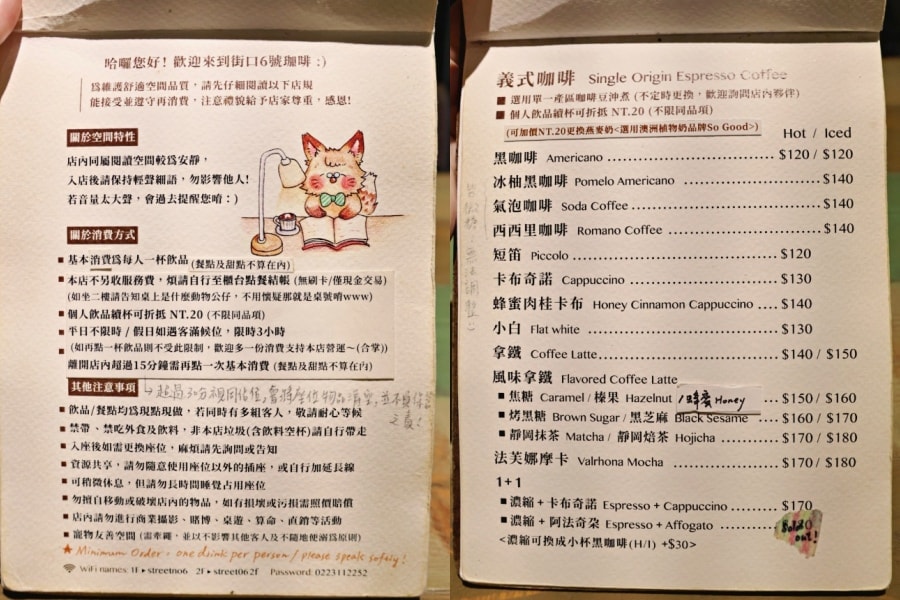 哈囉您好! 歡迎來到街口6號珈琲 :)
為維護舒適空間品質，請先仔細閱讀以下店規
能接受並遵守再消費，注意禮貌給予店家尊重，感恩!
關於空間特性
店內同屬閱讀空間較為安靜，
入店後請保持輕聲細語，勿影響他人!
若音量太大聲，會過去提醒您唷 : )
關於消費方式
基本消費為每人一杯飲品 (餐點及甜點不算在內)
本店不另收服務費，煩請自行至櫃台點餐結帳 (無刷卡/僅現金交易)
(如坐二樓請告知桌上是什麼動物公仔，不用懷疑那就是桌號唷www)
個人飲品續杯可折抵 NT.20 (不限同品項)
平日不限時 / 假日如遇客滿候位，限時3小時
(如再點一杯飲品則不受此限制，歡迎多一份消費支持本店營運～(合掌))
離開店內超過15分鐘需再點一次基本消費 (餐點及甜點不算在內)
其他注意事項
飲品/餐點均為現點現做，若同時有多組客人，敬請耐心等候
禁帶、禁吃外食及飲料，非本店垃圾(含飲料空杯)請自行帶走
入座後如需更換座位，麻煩請先詢問或告知
資源共享，請勿隨意使用座位以外的插座，或自行加延長線
可稍微休息，但請勿長時間睡覺占用座位
勿擅自移動或破壞店內的物品，如有損壞或污損需照價賠償
店內請勿進行商業攝影、賭博、桌遊、算命、直銷等活動
寵物友善空間 (需牽繩，並以不影響其他客人及不隨地便溺為原則)
★ Minimum Order : one drink per person / please speak softly!
WiFi names: 1F ▸ streetno6 2f ▸ street062f Password: 0223112252
義式咖啡 Single Origin Espresso Coffee
選用單一產區咖啡豆沖煮 (不定時更換，歡迎詢問店內夥伴)
個人飲品續杯可折抵 NT.20 (不限同品項)
(可加價NT.20更換燕麥奶<選用澳洲植物奶品牌So Good>)
Hot / Iced
黑咖啡 Americano $120 / $120
冰柚黑咖啡 Pomelo Americano $140
氣泡咖啡 Soda Coffee $140
西西里咖啡 Romano Coffee $140
短笛 Piccolo $120
卡布奇諾 Cappuccino $130
蜂蜜肉桂卡布 Honey Cinnamon Cappuccino $140
小白 Flat white $130
拿鐵 Coffee Latte $140 / $150
風味拿鐵 Flavored Coffee Latte
焦糖 Caramel / 榛果 Hazelnut / 蜂蜜 Honey $150 / $160
烤黑糖 Brown Sugar / 黑芝麻 Black Sesame $160 / $170
靜岡抹茶 Matcha / 靜岡焙茶 Hojicha $170 / $180
法芙娜摩卡 Valrhona Mocha $170 / $180
1 + 1
濃縮 + 卡布奇諾 Espresso + Cappuccino $170
濃縮 + 阿法奇朶 Espresso + Affogato
Sold out!
<濃縮可換成小杯黑咖啡(H/I) +$30>